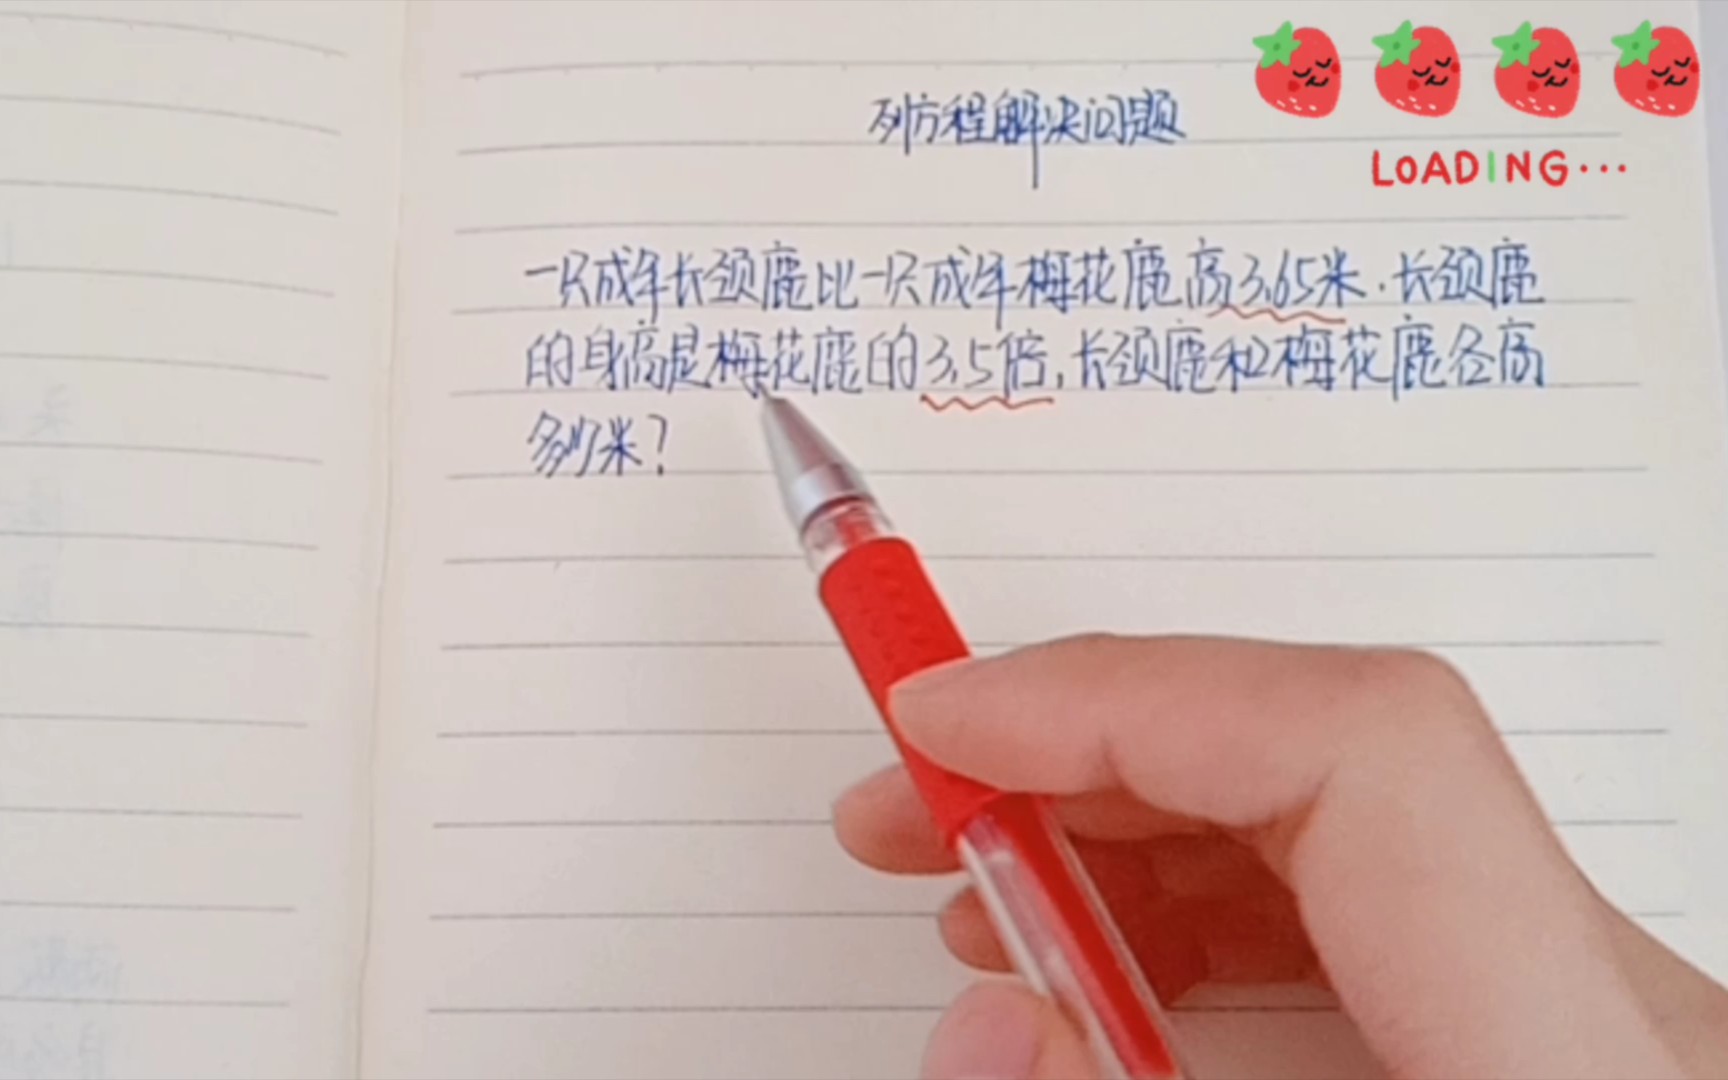 列方程解决问题
LOADING...
一只成年长颈鹿比一只成年梅花鹿高3.65米.长颈鹿
的身高是梅花鹿的3.5倍,长颈鹿和梅花鹿各高
多少米?